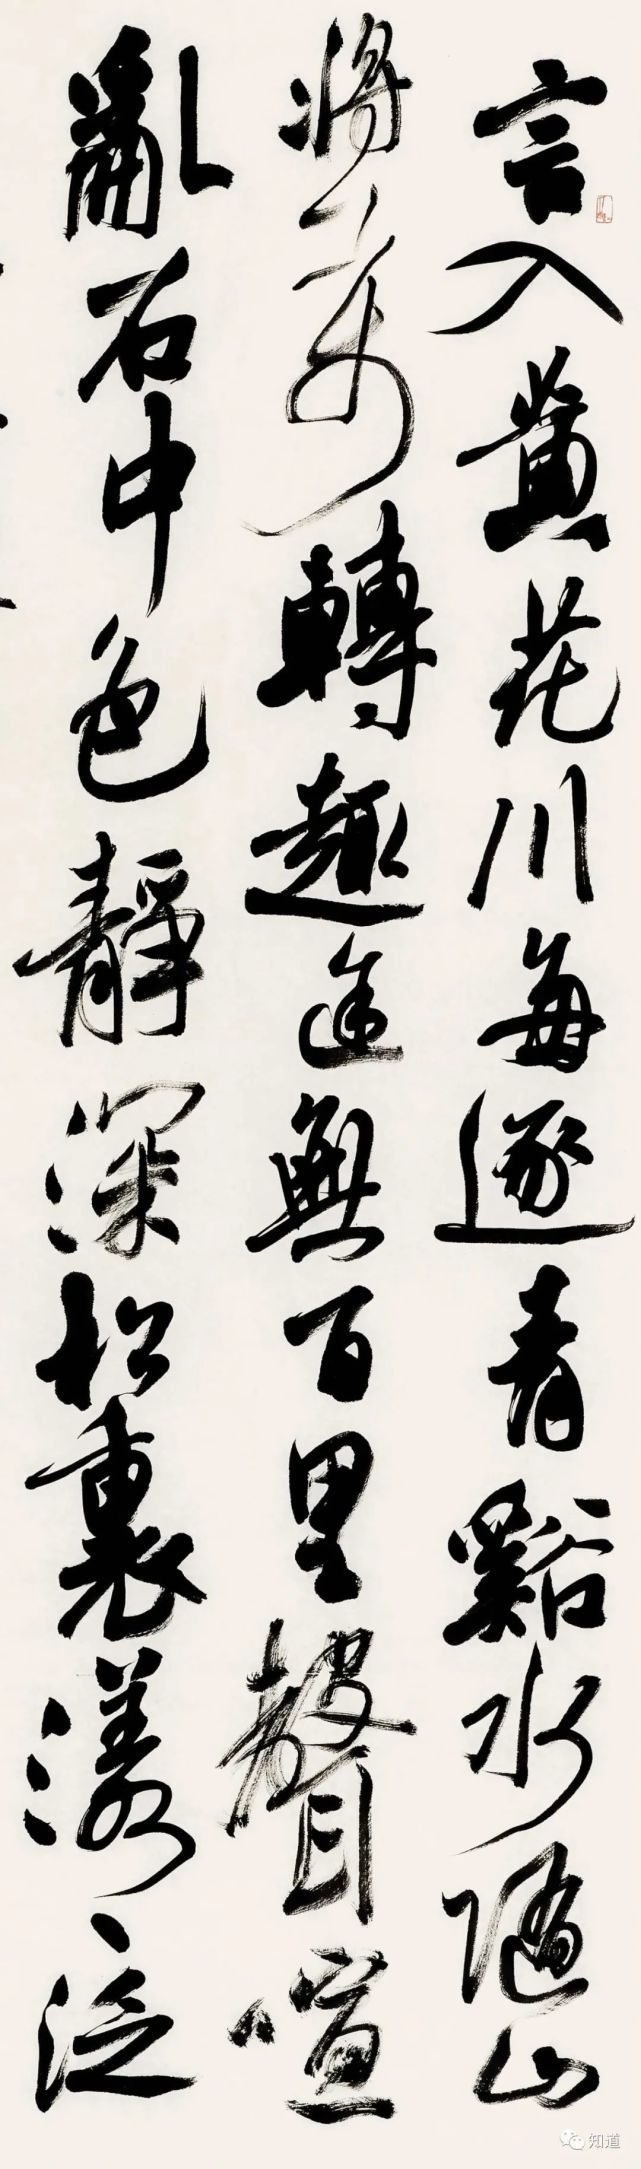 言入黃花川每逐青谿水隨山
將萬轉趣途無百里聲喧
亂石中色靜深松裏漾々泛
知道